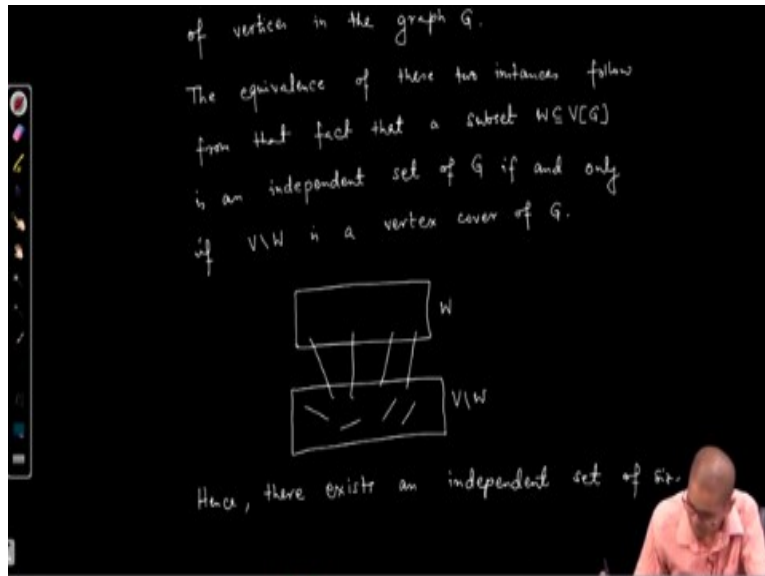 of vertices in the graph G.
The equivalence of these two instances follow
from that fact that a subset W⊆V[G]
is an independent set of G if and only
if V\W is a vertex cover of G.
W
V\W
Hence, there exists an independent set of